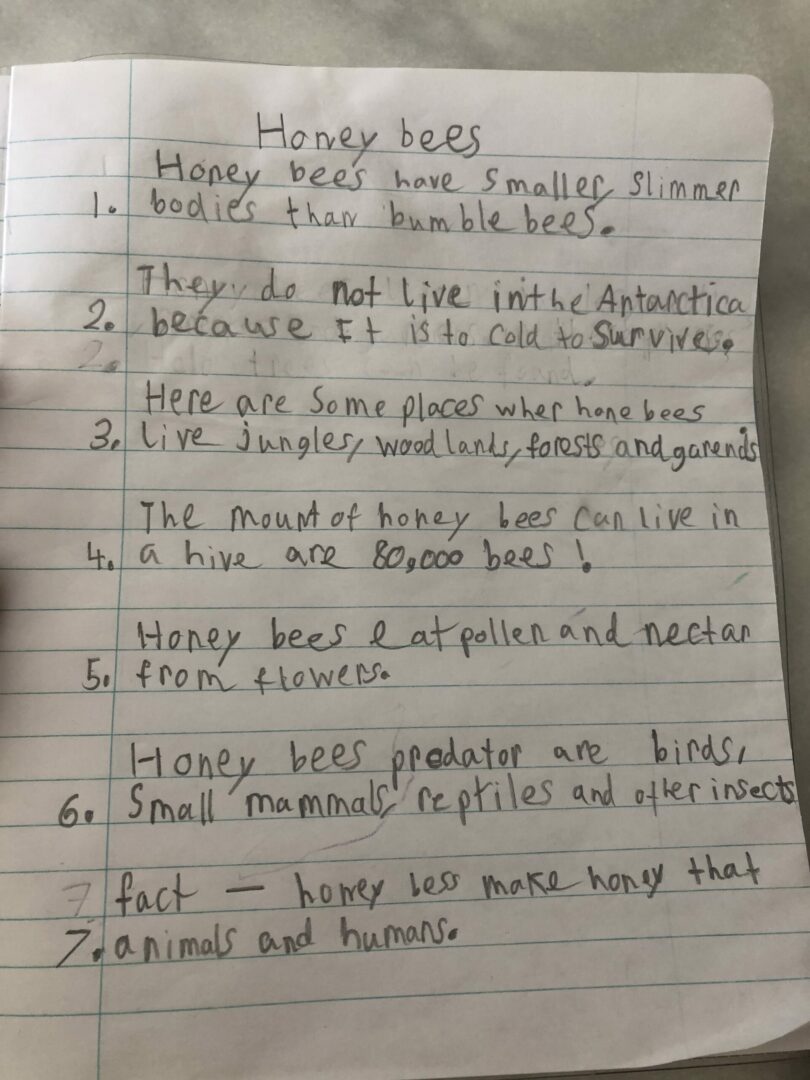 Honey bees
Honey bees have smaller, slimmer
1. bodies than bumble bees.
They do not live in the Antarctica
2. because It is to cold to survive.
Here are some places wher hone bees
3. live jungles, woodlands, forests and garends
The mount of honey bees can live in
4. a hive are 80,000 bees!
Honey bees eat pollen and nectar
5. from flowers.
Honey bees predator are birds,
6. small mammals, reptiles and other insects
fact — honey bess make honey that
7. animals and humans.